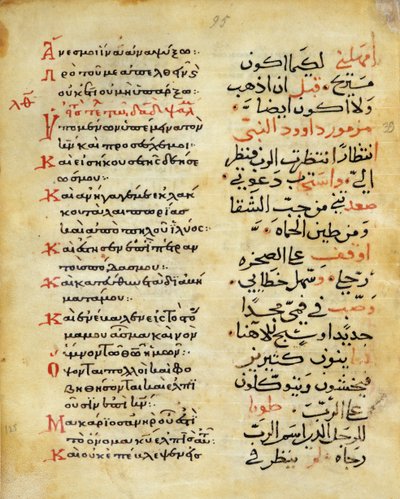 95
Ἄνες μοι ἵνα ἀναψύξω:
Πρὸ τοῦ με ἀπελθεῖν
οὐκέτι οὐ μὴ ὑπάρξω:
λθ
Ὑπομένων ὑπέμεινα τὸν
κν καὶ προσέσχε μοι:
Καὶ εἰσήκουσε τῆς δεήσε
ώς μου:
Καὶ ἀνήγαγέ με ἐκ λακ
κου ταλαιπωρίας
καὶ ἀπὸ πηλοῦ ἰλύος:
Καὶ ἔστησεν ἐπὶ πέτραν
τοὺς πόδας μου:
Καὶ κατεύθυνε τὰ διαβή
ματά μου:
Καὶ ἐνέβαλεν εἰς τὸ στό
μα μου ᾆσμα καινὸν
ὕμνον τῷ θω ἡμῶν:
Ὄψονται πολλοὶ καὶ φο
βηθήσονται καὶ ἐλπι
οῦσιν ἐπὶ κν:
Μακάριος ἀνὴρ οὗ ἐστὶ
τὸ ὄνομα κυ ἐλπὶς αὐτοῦ
Καὶ οὐκ ἐπέβλεψεν εἰς
امهلني لكيما اكون
قبل ان اذهب
ولا اكون ايضا
مزمور داوود النبي
انتظارا انتظرت الرب فنظر
الي واستجب دعوتي
صعدني من جب الشقا
ومن طين الحماه
اوقف على الصخره
رجلي وسهل خطايي
وصب في فمي مجدا
جديدا وسبح لالاهنا
ينون كثيرين
فيخشون ويتوكلون
على الرب طوبا
للرجل الذي اسم الرب
رجاه ينظر في